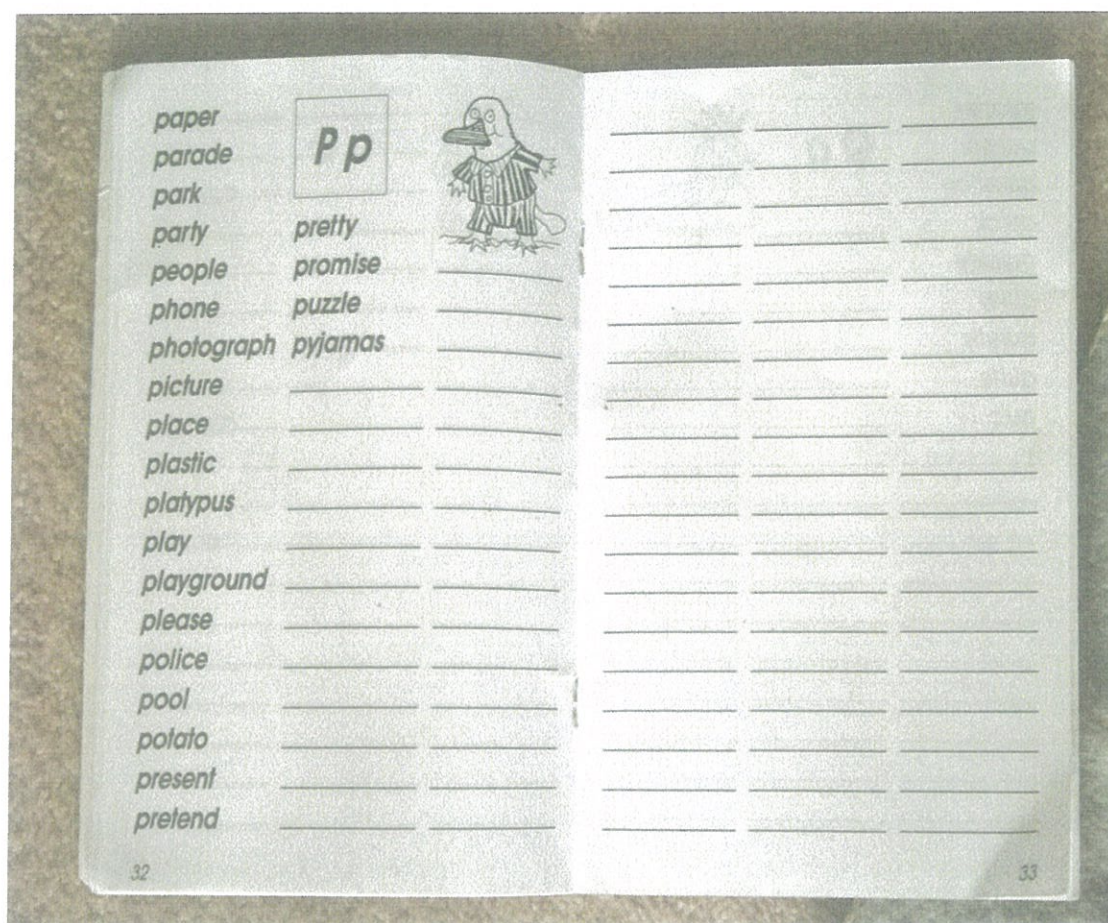 paper
parade
park
party
people
phone
photograph
picture
place
plastic
platypus
play
playground
please
police
pool
potato
present
pretend
P p
pretty
promise
puzzle
pyjamas
32
33